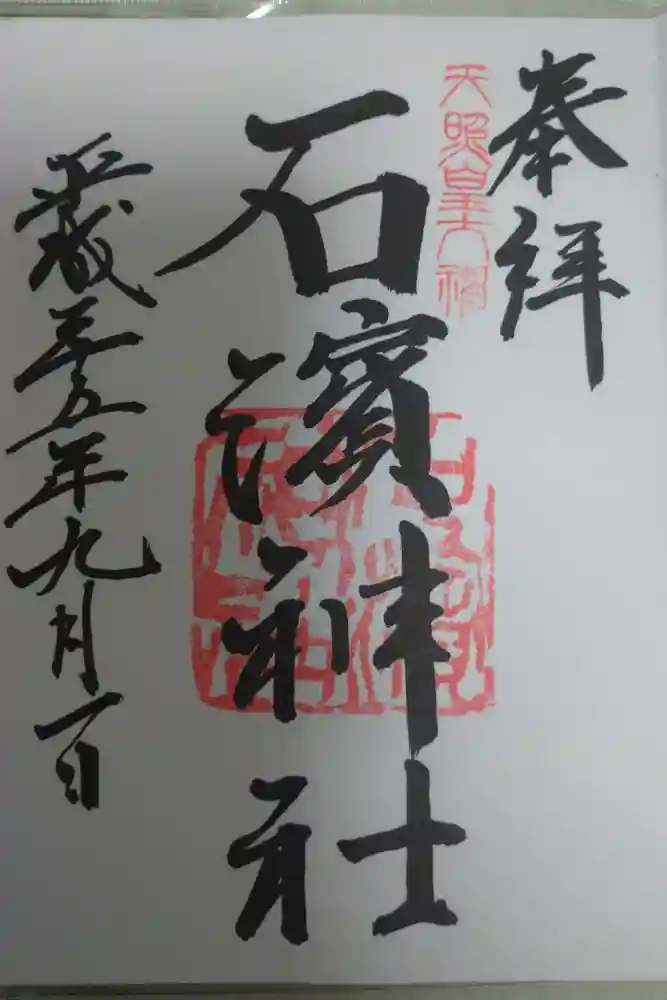 奉拝
天照皇大神
石濱神社
平成二十五年九月一日